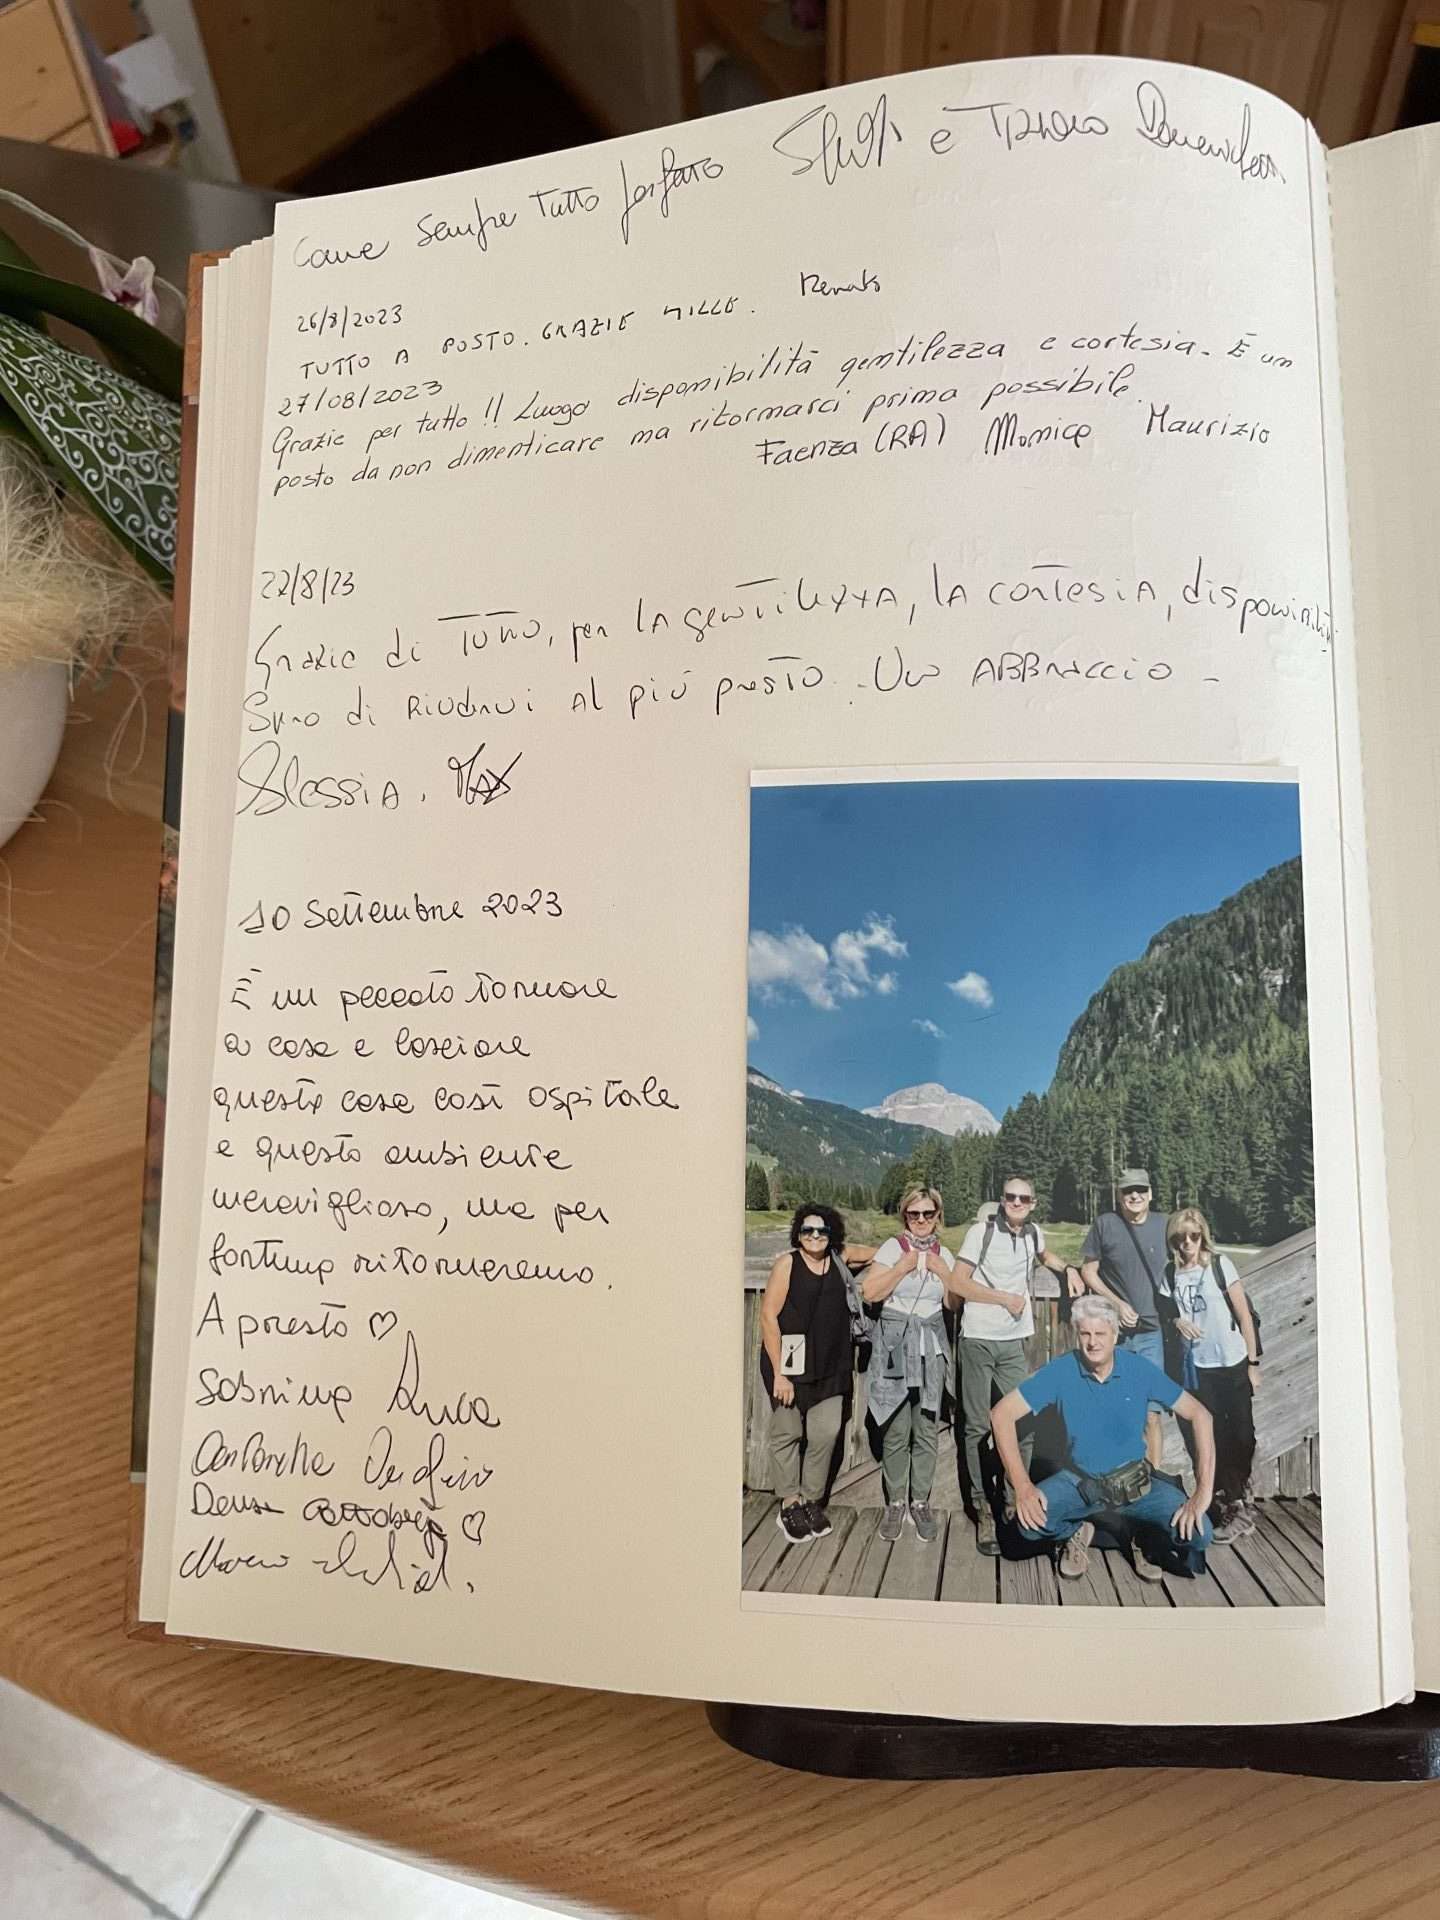 Come sempre tutto perfetto
26/8/2023
TUTTO A POSTO. GRAZIE MILLE. Renato
27/08/2023
Grazie per tutto !! Luogo disponibilità gentilezza e cortesia. È un
posto da non dimenticare ma ritornarci prima possibile.
Faenza (RA) Monica Maurizio
27/8/23
Grazie di TUTTO, per LA gentilezzA, LA cortesiA, disponibilità
Spero di Rivedervi Al più presto. Un ABBraccio -
AlessiA. Max
10 Settembre 2023
È un peccato tornare
a casa e lasciare
questa casa così ospitale
e questo ambiente
meraviglioso, ma per
fortuna ritorneremo.
A presto ♡
Sabrina Luca
♡